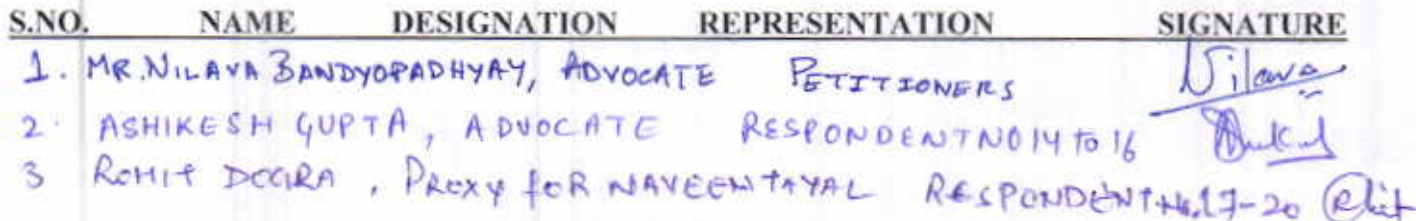 S.NO. NAME DESIGNATION REPRESENTATION SIGNATURE
1. MR. NILAVA BANDYOPADHYAY, ADVOCATE PETITIONERS Nilava
2. ASHIKESH GUPTA, ADVOCATE RESPONDENT NO 14 TO 16
3 ROHIT DOGRA, PROXY FOR NAVEEN TAYAL RESPONDENT No. 17-20 Rohit